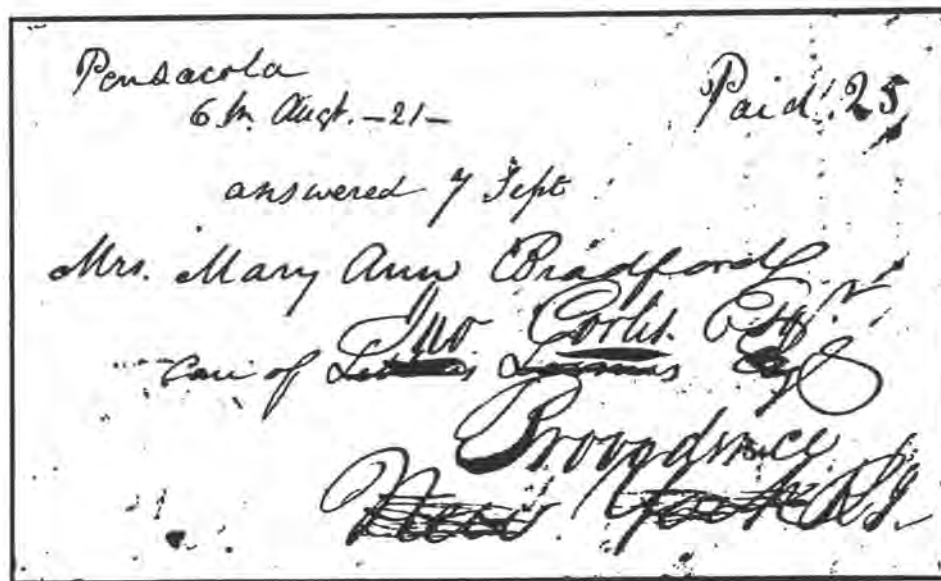 Pensacola
6th Augt. -21-
Paid 25
answered 7 Sept
Mrs. Mary Ann Bradford
Jno Corlis Esqr.
Care of
Providence
New York R I.